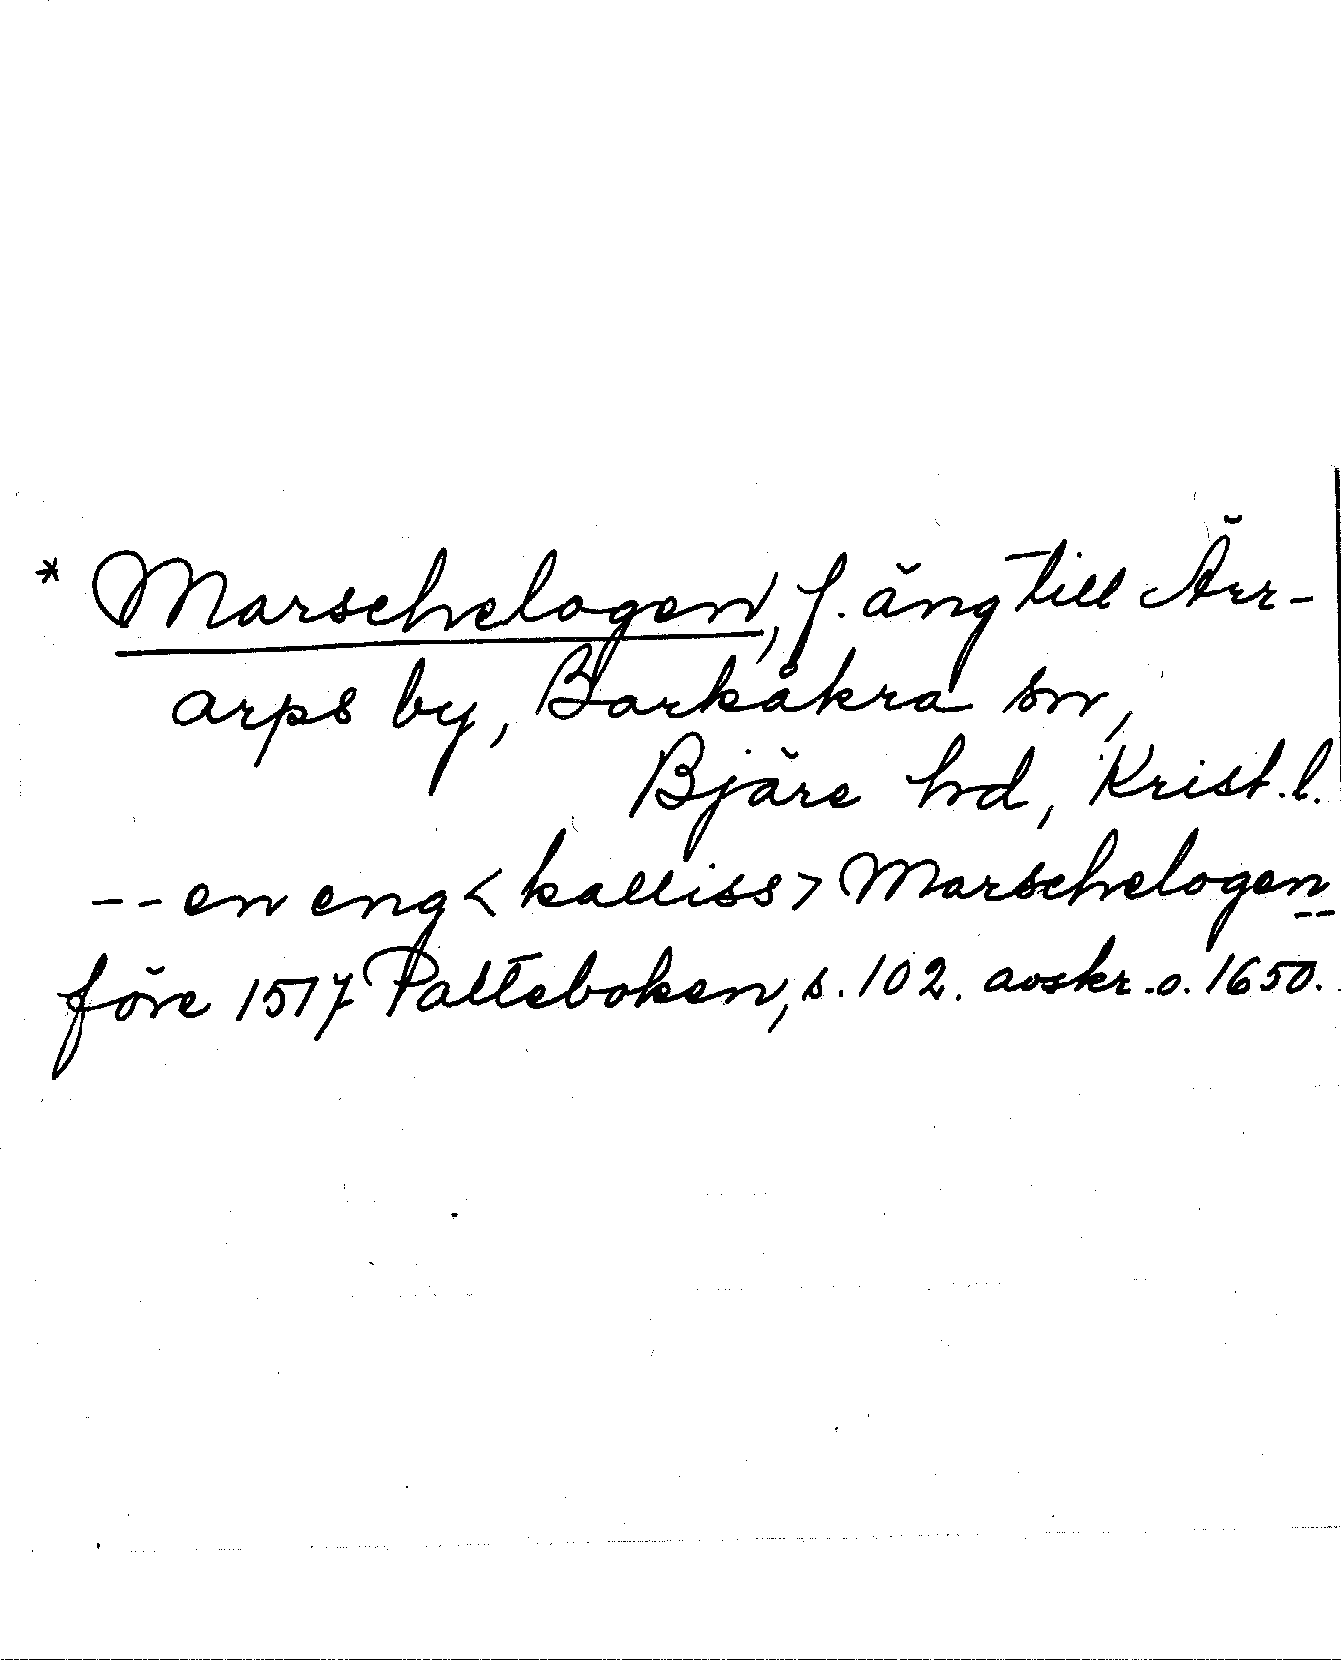 * Marschelogen, f. äng till Ärr-
arps by, Barkåkra sn,
Bjäre hd, Krist. l.
-- en eng < kalliss > Marschelogen --
före 1517 Palteboken, s. 102. avskr. o. 1650.